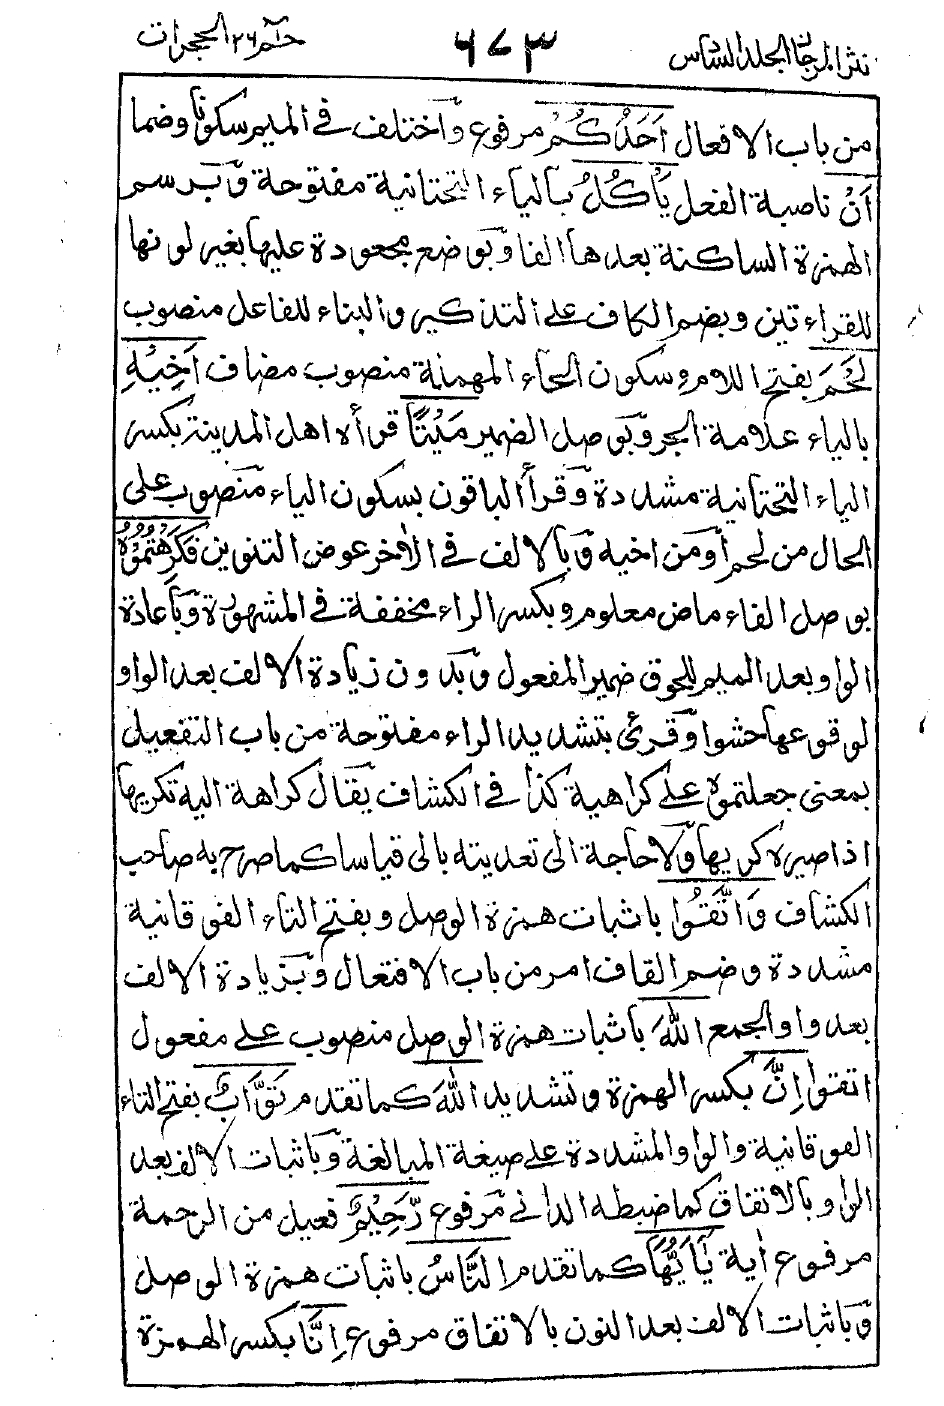 نثر المرجان المجلد السادس
٦٧٣
حٰم ٢٦ الحجرات
من باب الافعال اَحَدُكُمْ مرفوع واختلف فى الميم سكونا وضما
اَنْ ناصبة الفعل يَاْكُلُ بالياء التحتانية مفتوحة وبرسم
الهمزة الساكنة بعدها الفا وبوضع مجعودة عليها بغير لونها
للقراءتين وبضم الكاف على التذكير والبناء للفاعل منصوب
لَحْمَ بفتح اللام وسكون الحاء المهملة منصوب مضاف اَخِيْهِ
بالياء علامة الجر وبوصل الضمير مَيْتًا قرأه اهل المدينة بكسر
الياء التحتانية مشددة وقرأ الباقون بسكون الياء منصوب على
الحال من لحم أو من اخيه وبالالف فى الآخر عوض التنوين فَكَرِهْتُمُوْهُ
بوصل الفاء ماض معلوم وبكسر الراء مخففة فى المشهورة وباعادة
الواو بعد الميم للحوق ضمير المفعول وبدون زيادة الالف بعد الواو
لوقوعها حشوا وقرئ بتشديد الراء مفتوحة من باب التفعيل
بمعنى جعلتموه على كراهية كذا فى الكشاف يقال كراهة اليه تكريها
اذا صيره كريها ولا حاجة الى تعديته بالى قياسا كما صرح به صاحب
الكشاف وَاتَّقُوا باثبات همزة الوصل وبفتح التاء الفوقانية
مشددة وضم القاف امر من باب الافتعال وبزيادة الالف
بعد واو الجمع اللّٰهَ باثبات همزة الوصل منصوب على مفعول
اتقوا اِنَّ بكسر الهمزة وتشديد اللّٰهَ كما تقدم تَوَّابٌ بفتح التاء
الفوقانية والواو المشددة على صيغة المبالغة وباثبات الالف بعد
الواو بالاتفاق كما ضبطه الدانى مرفوع رَّحِيْمٌ فعيل من الرحمة
مرفوع اٰية يٰاَيُّهَا كما تقدم النَّاسُ باثبات همزة الوصل
وباثبات الالف بعد النون بالاتفاق مرفوع اِنَّا بكسر الهمزة